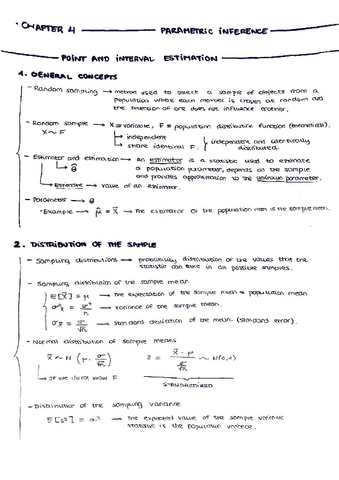 · CHAPTER 4 — PARAMETRIC INFERENCE
POINT AND INTERVAL ESTIMATION
1. GENERAL CONCEPTS
- Random sampling → method used to select a sample of objects from a
population where each member is chosen at random and
the selection of one does not influence another.
- Random sample → X ≡ variable, F ≡ population distribution function (theoretical).
X ~ F
independent
share identical F. } independent and identically distributed.
- Estimator and estimation → An estimator is a statistic used to estimate
θ̂ a population parameter, depends on the sample
and provides approximation to the unknown parameter.
Estimate → value of an estimator.
- Parameter → θ
· Example → μ̂ = x̄ → The estimator of the population mean is the sample mean.
2. DISTRIBUTION OF THE SAMPLE
- Sampling distributions → probability distribution of the values that the
statistic can take in all possible samples.
- Sampling distribution of the sample mean
E[x̄] = μ → The expectation of the sample mean = population mean
σ²x̄ = σ²/n → variance of the sample mean.
σx̄ = σ/√n → standard deviation of the mean (standard error).
- Normal distribution of sample means
x̄ ~ N (μ, σ/√n) z = (x̄ - μ)/(σ/√n) ~ N(0,1)
→ If we do not know F STANDARDIZED
- Distribution of the sampling variance
E[s²] = σ² → The expected value of the sample variance
statistic is the population variance.